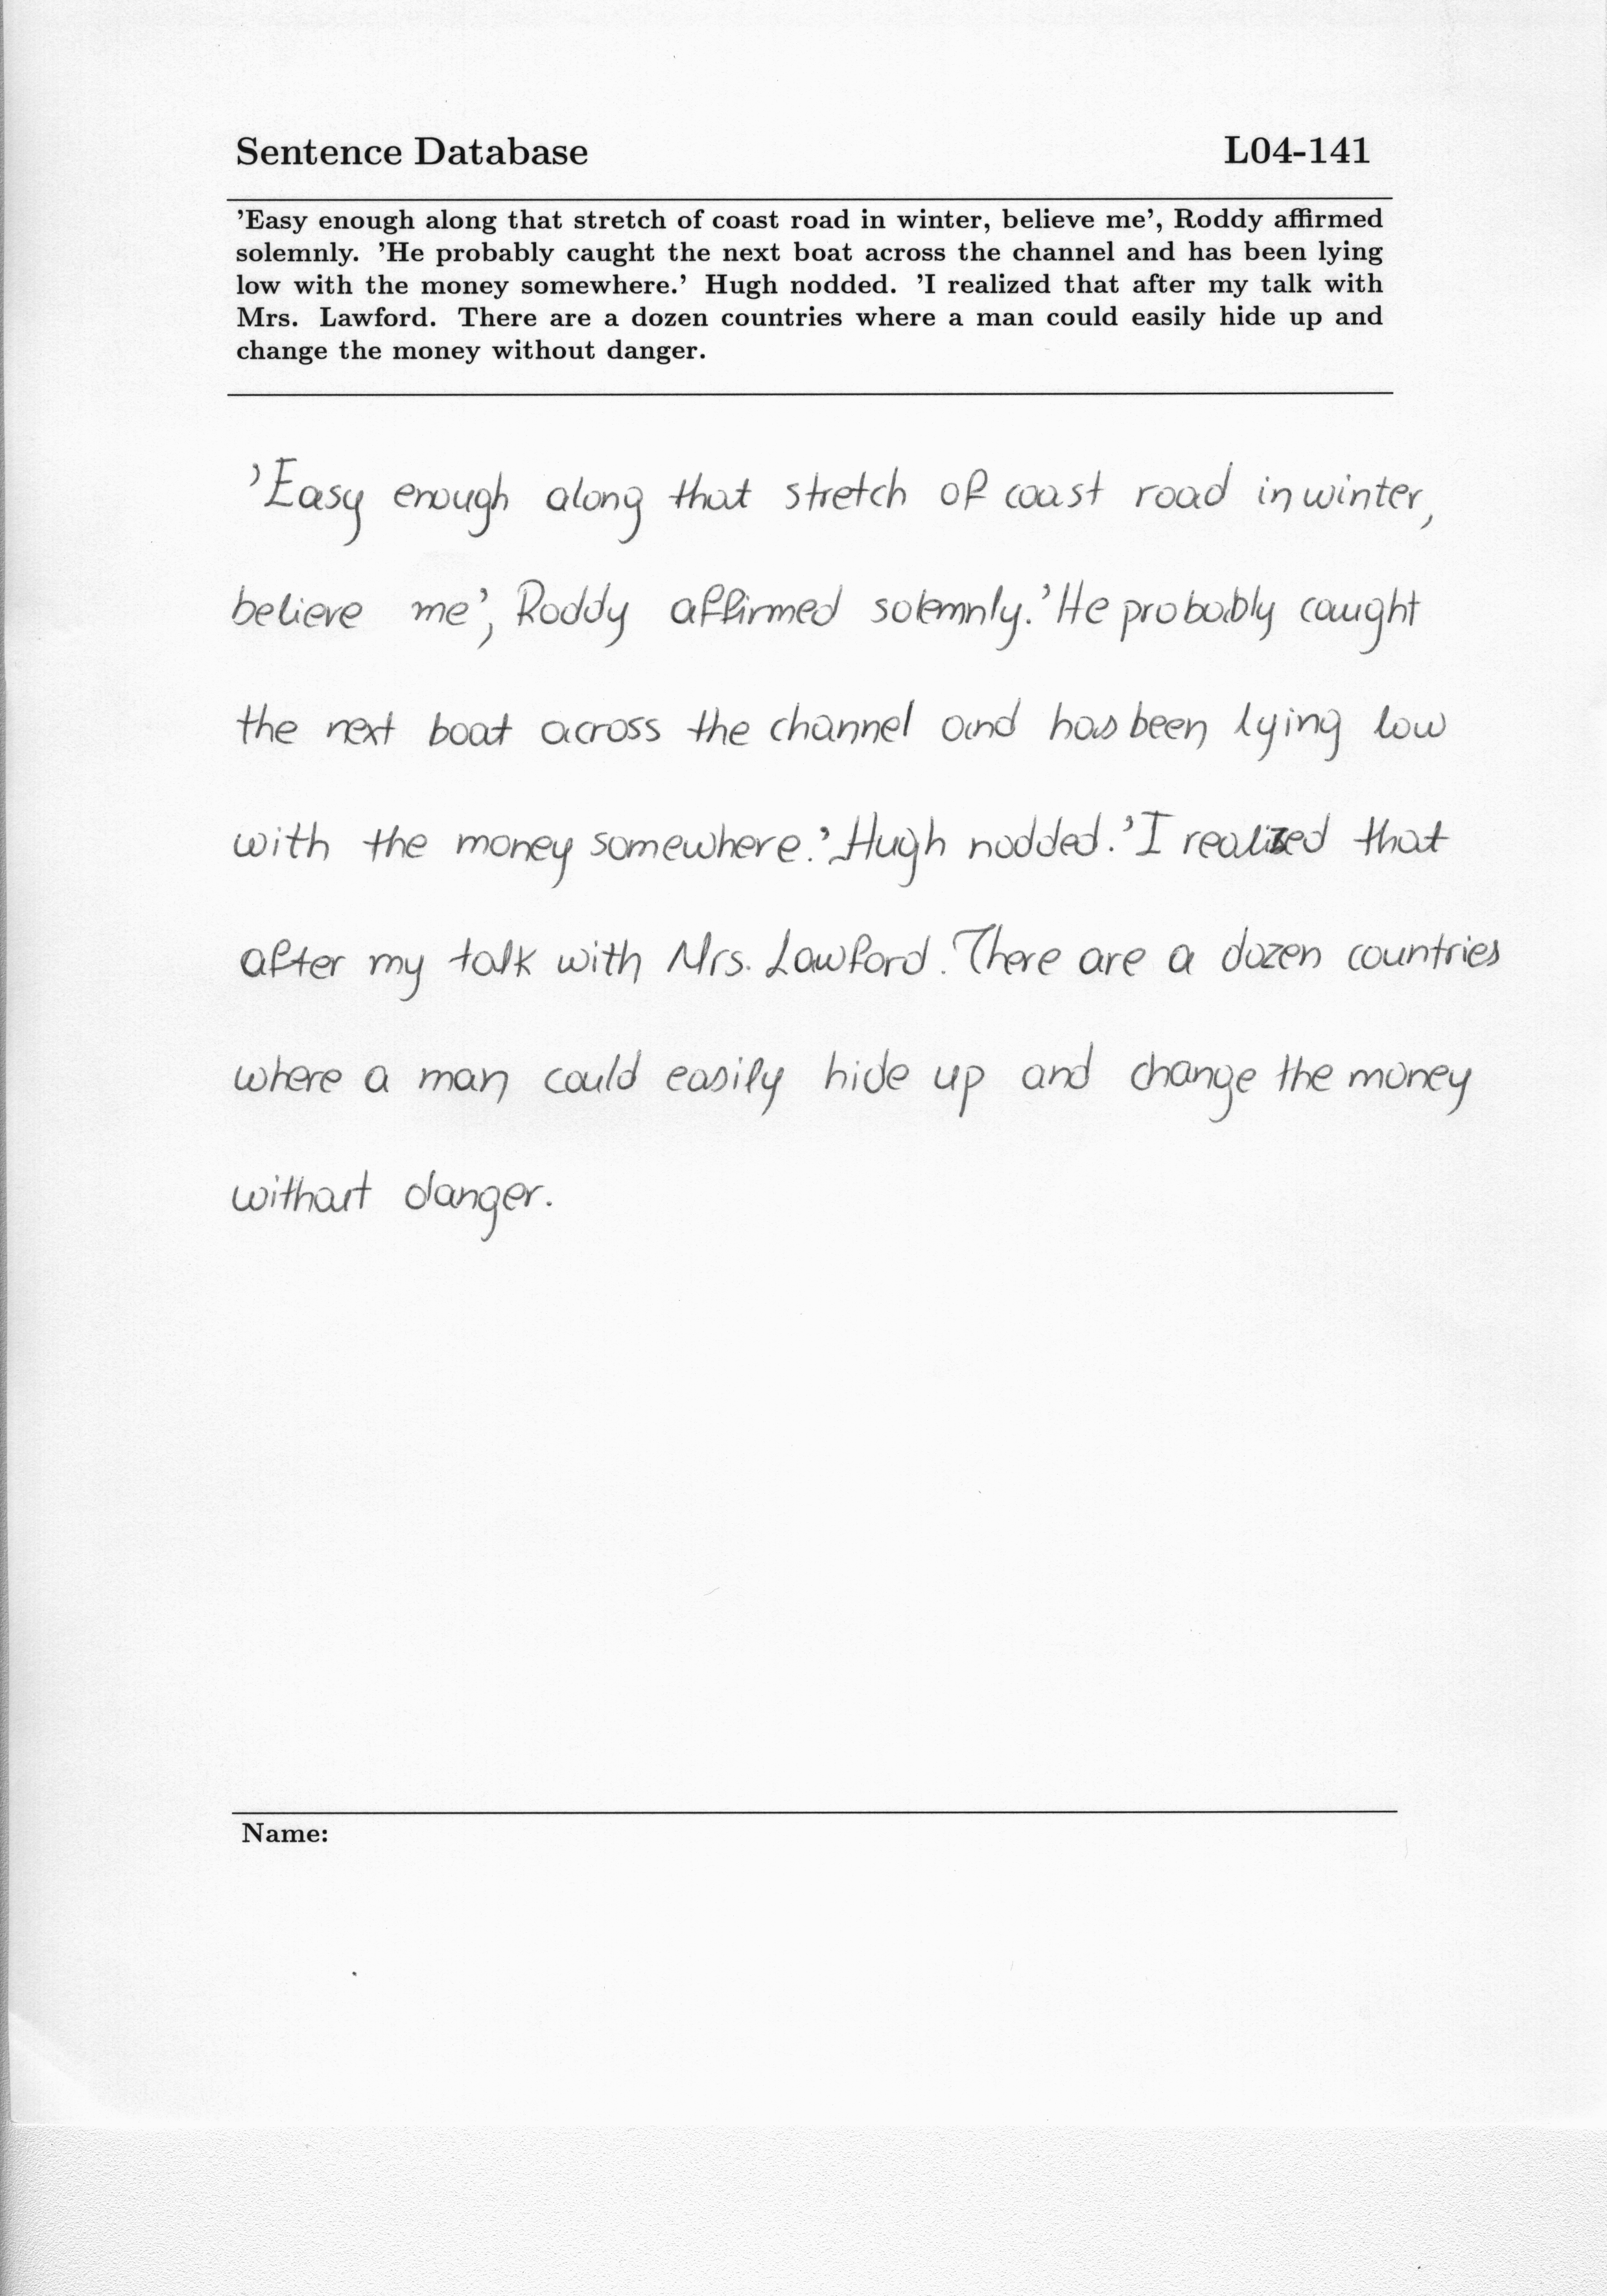 Sentence Database L04-141
'Easy enough along that stretch of coast road in winter, believe me', Roddy affirmed
solemnly. 'He probably caught the next boat across the channel and has been lying
low with the money somewhere.' Hugh nodded. 'I realized that after my talk with
Mrs. Lawford. There are a dozen countries where a man could easily hide up and
change the money without danger.
'Easy enough along that stretch of coast road in winter,
believe me', Roddy affirmed solemnly. 'He probably caught
the next boat across the channel and has been lying low
with the money somewhere.' Hugh nodded. 'I realized that
after my talk with Mrs. Lawford. There are a dozen countries
where a man could easily hide up and change the money
without danger.
Name: